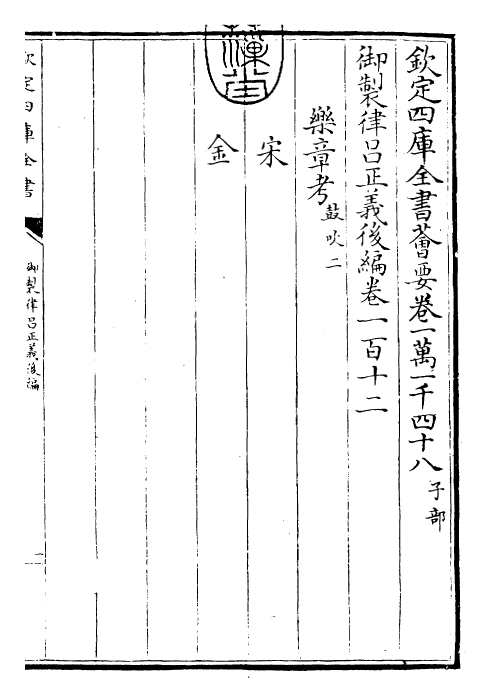 欽定四庫全書薈要卷一萬一千四十八 子部
御製律呂正義後編卷一百十二
樂章考 鼓吹二
宋
金
欽定四庫全書
御製律呂正義後編
一